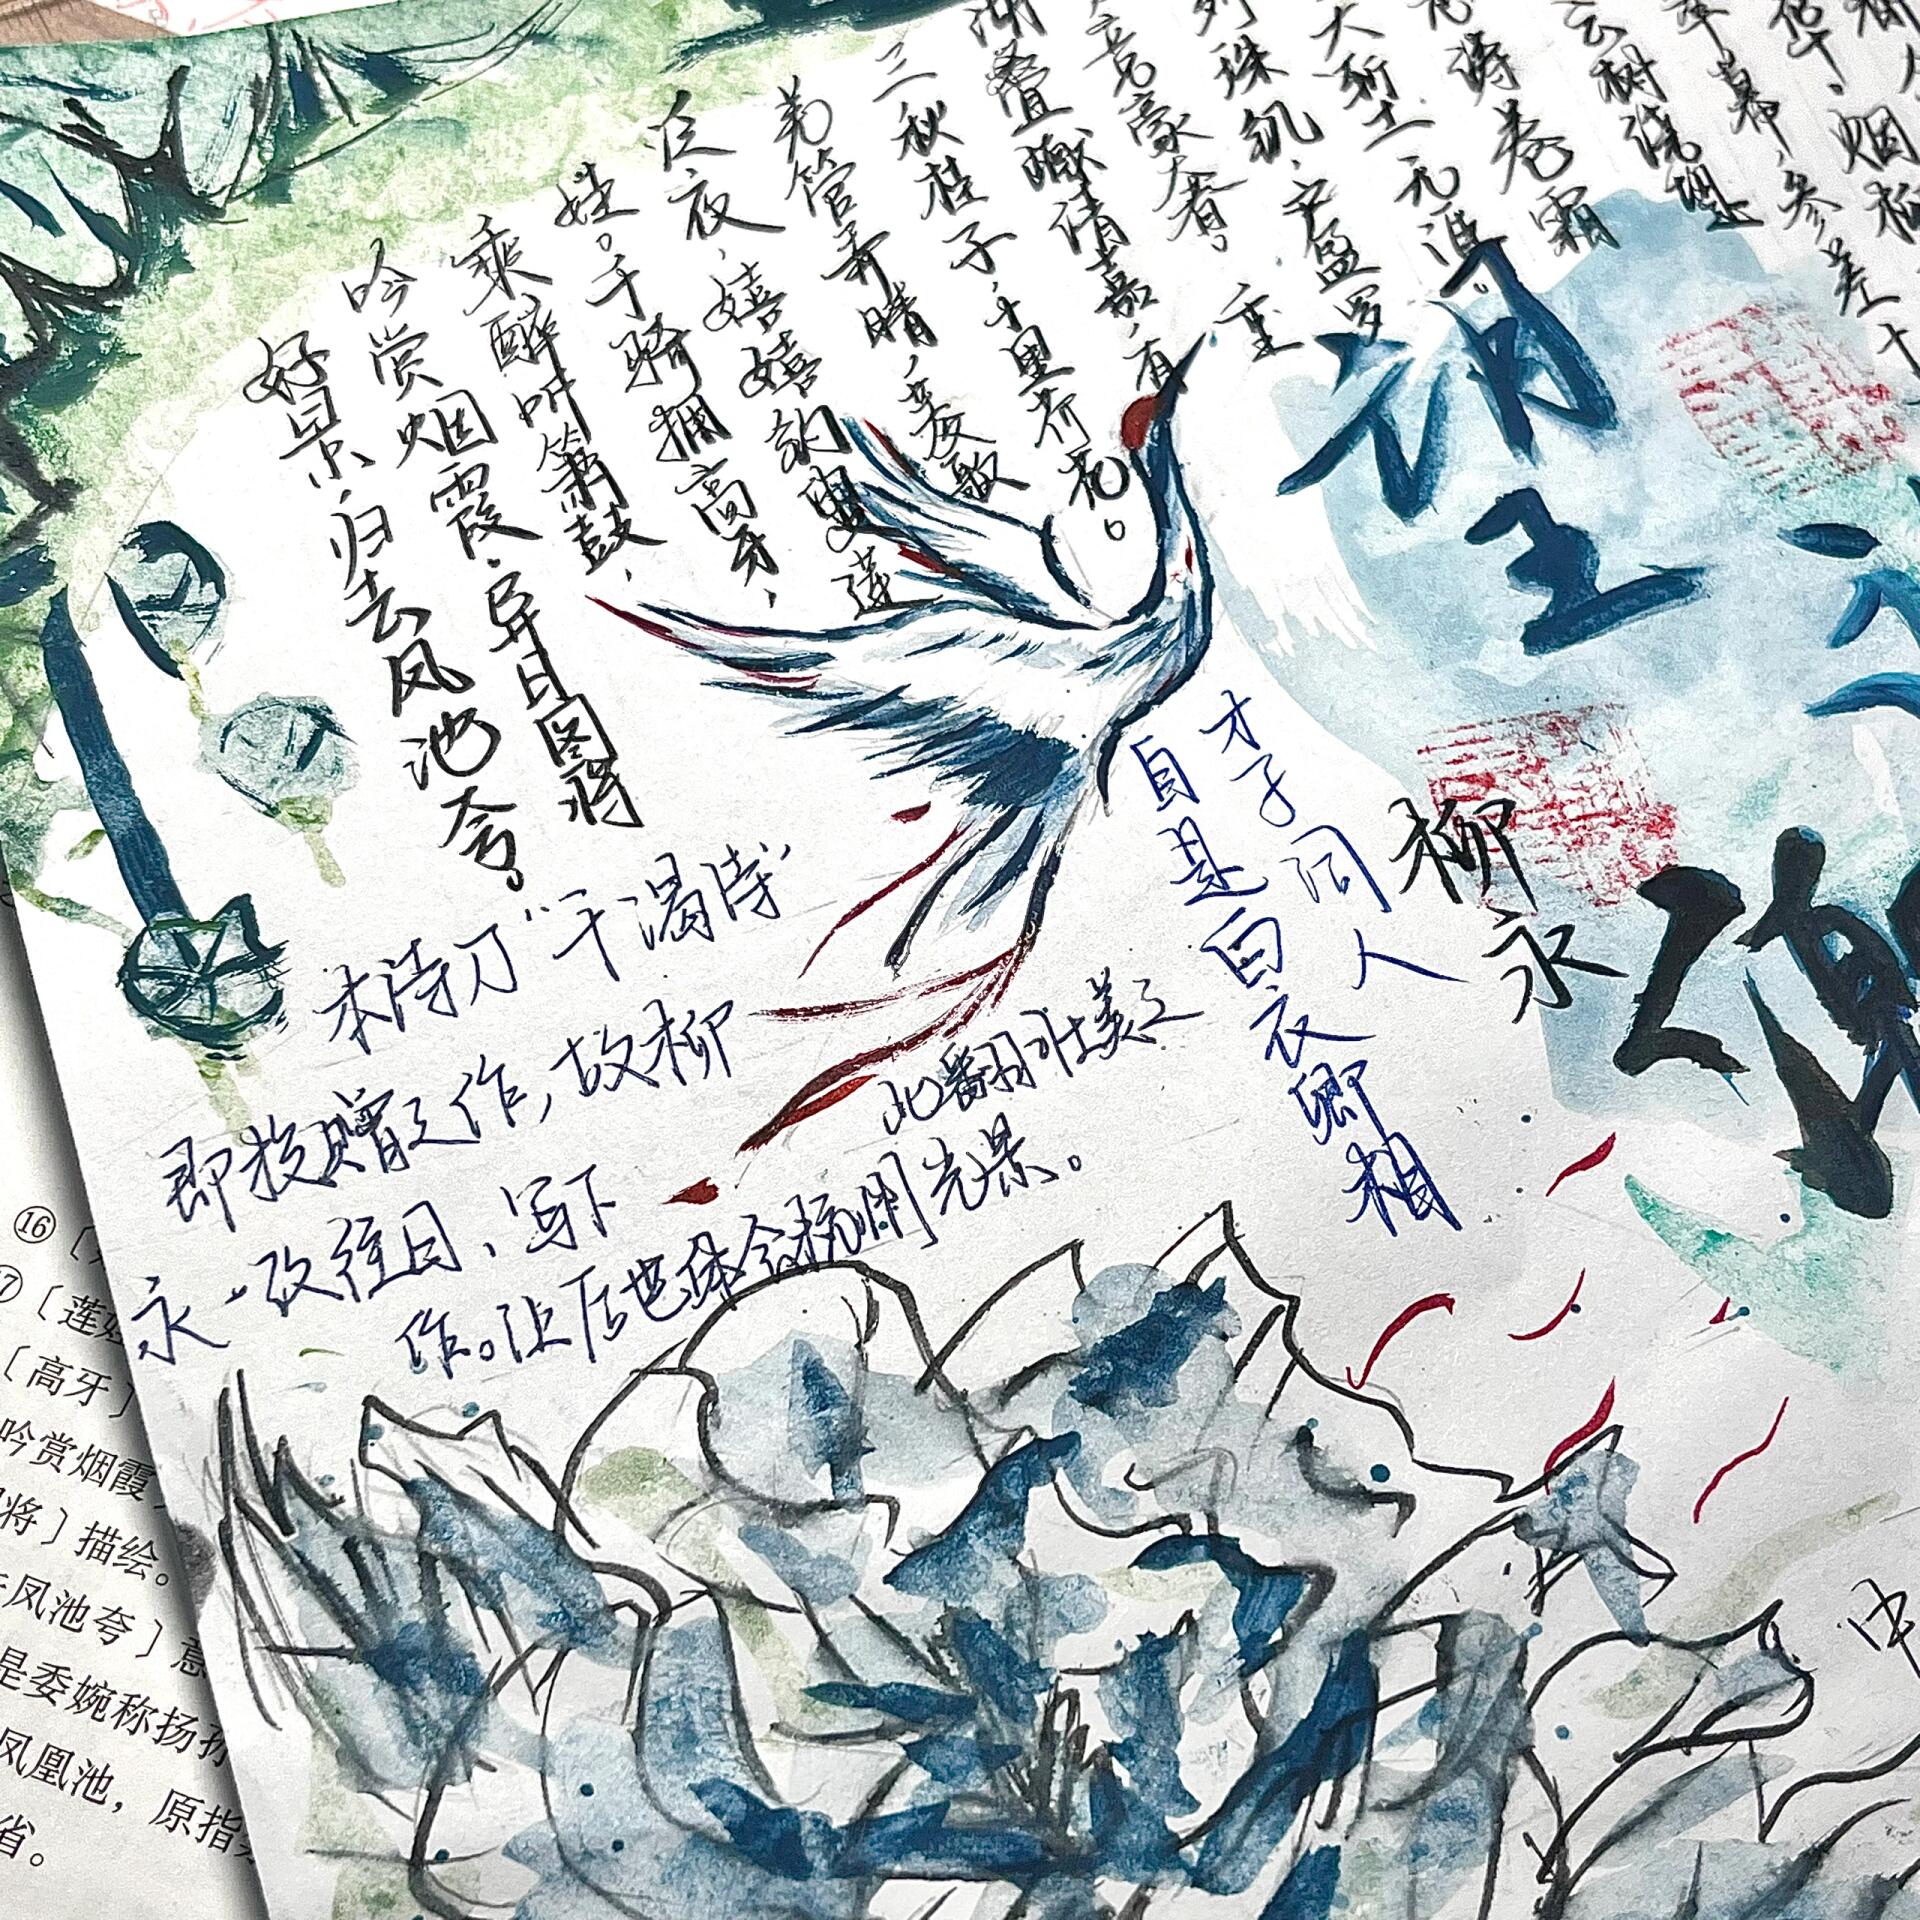 烟柳
幕，参差十
云树绕堤
涛卷霜
天堑无涯。
列珠玑，户盈罗
竞豪奢。重
湖叠巘清嘉，有
三秋桂子，十里荷花。
羌管弄晴，菱歌
泛夜，嬉嬉钓叟莲
娃。千骑拥高牙，
乘醉听箫鼓，
吟赏烟霞。异日图将
好景，归去凤池夸。
望
柳永
才子词人
自是白衣卿相
本诗乃“干谒诗”
即投赠之作，故柳
永一改往日、写下
此翻壮美之
作。让后世体会杭州光景。
⑯〔
〔莲娃
〔高牙〕
吟赏烟霞
将〕描绘。
凤池夸〕意
是委婉称扬孙
凤凰池，原指
省。